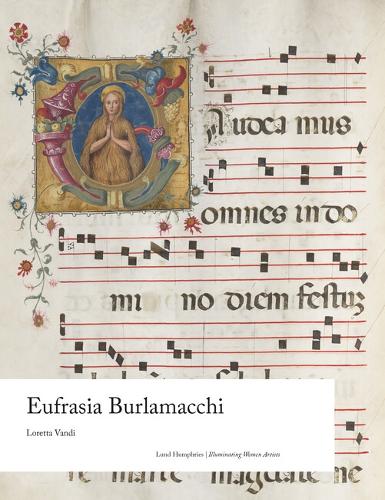 audea mus
omnes in do
mi no diem festuz
Eufrasia Burlamacchi
Loretta Vandi
Lund Humphries | Illuminating Women Artists